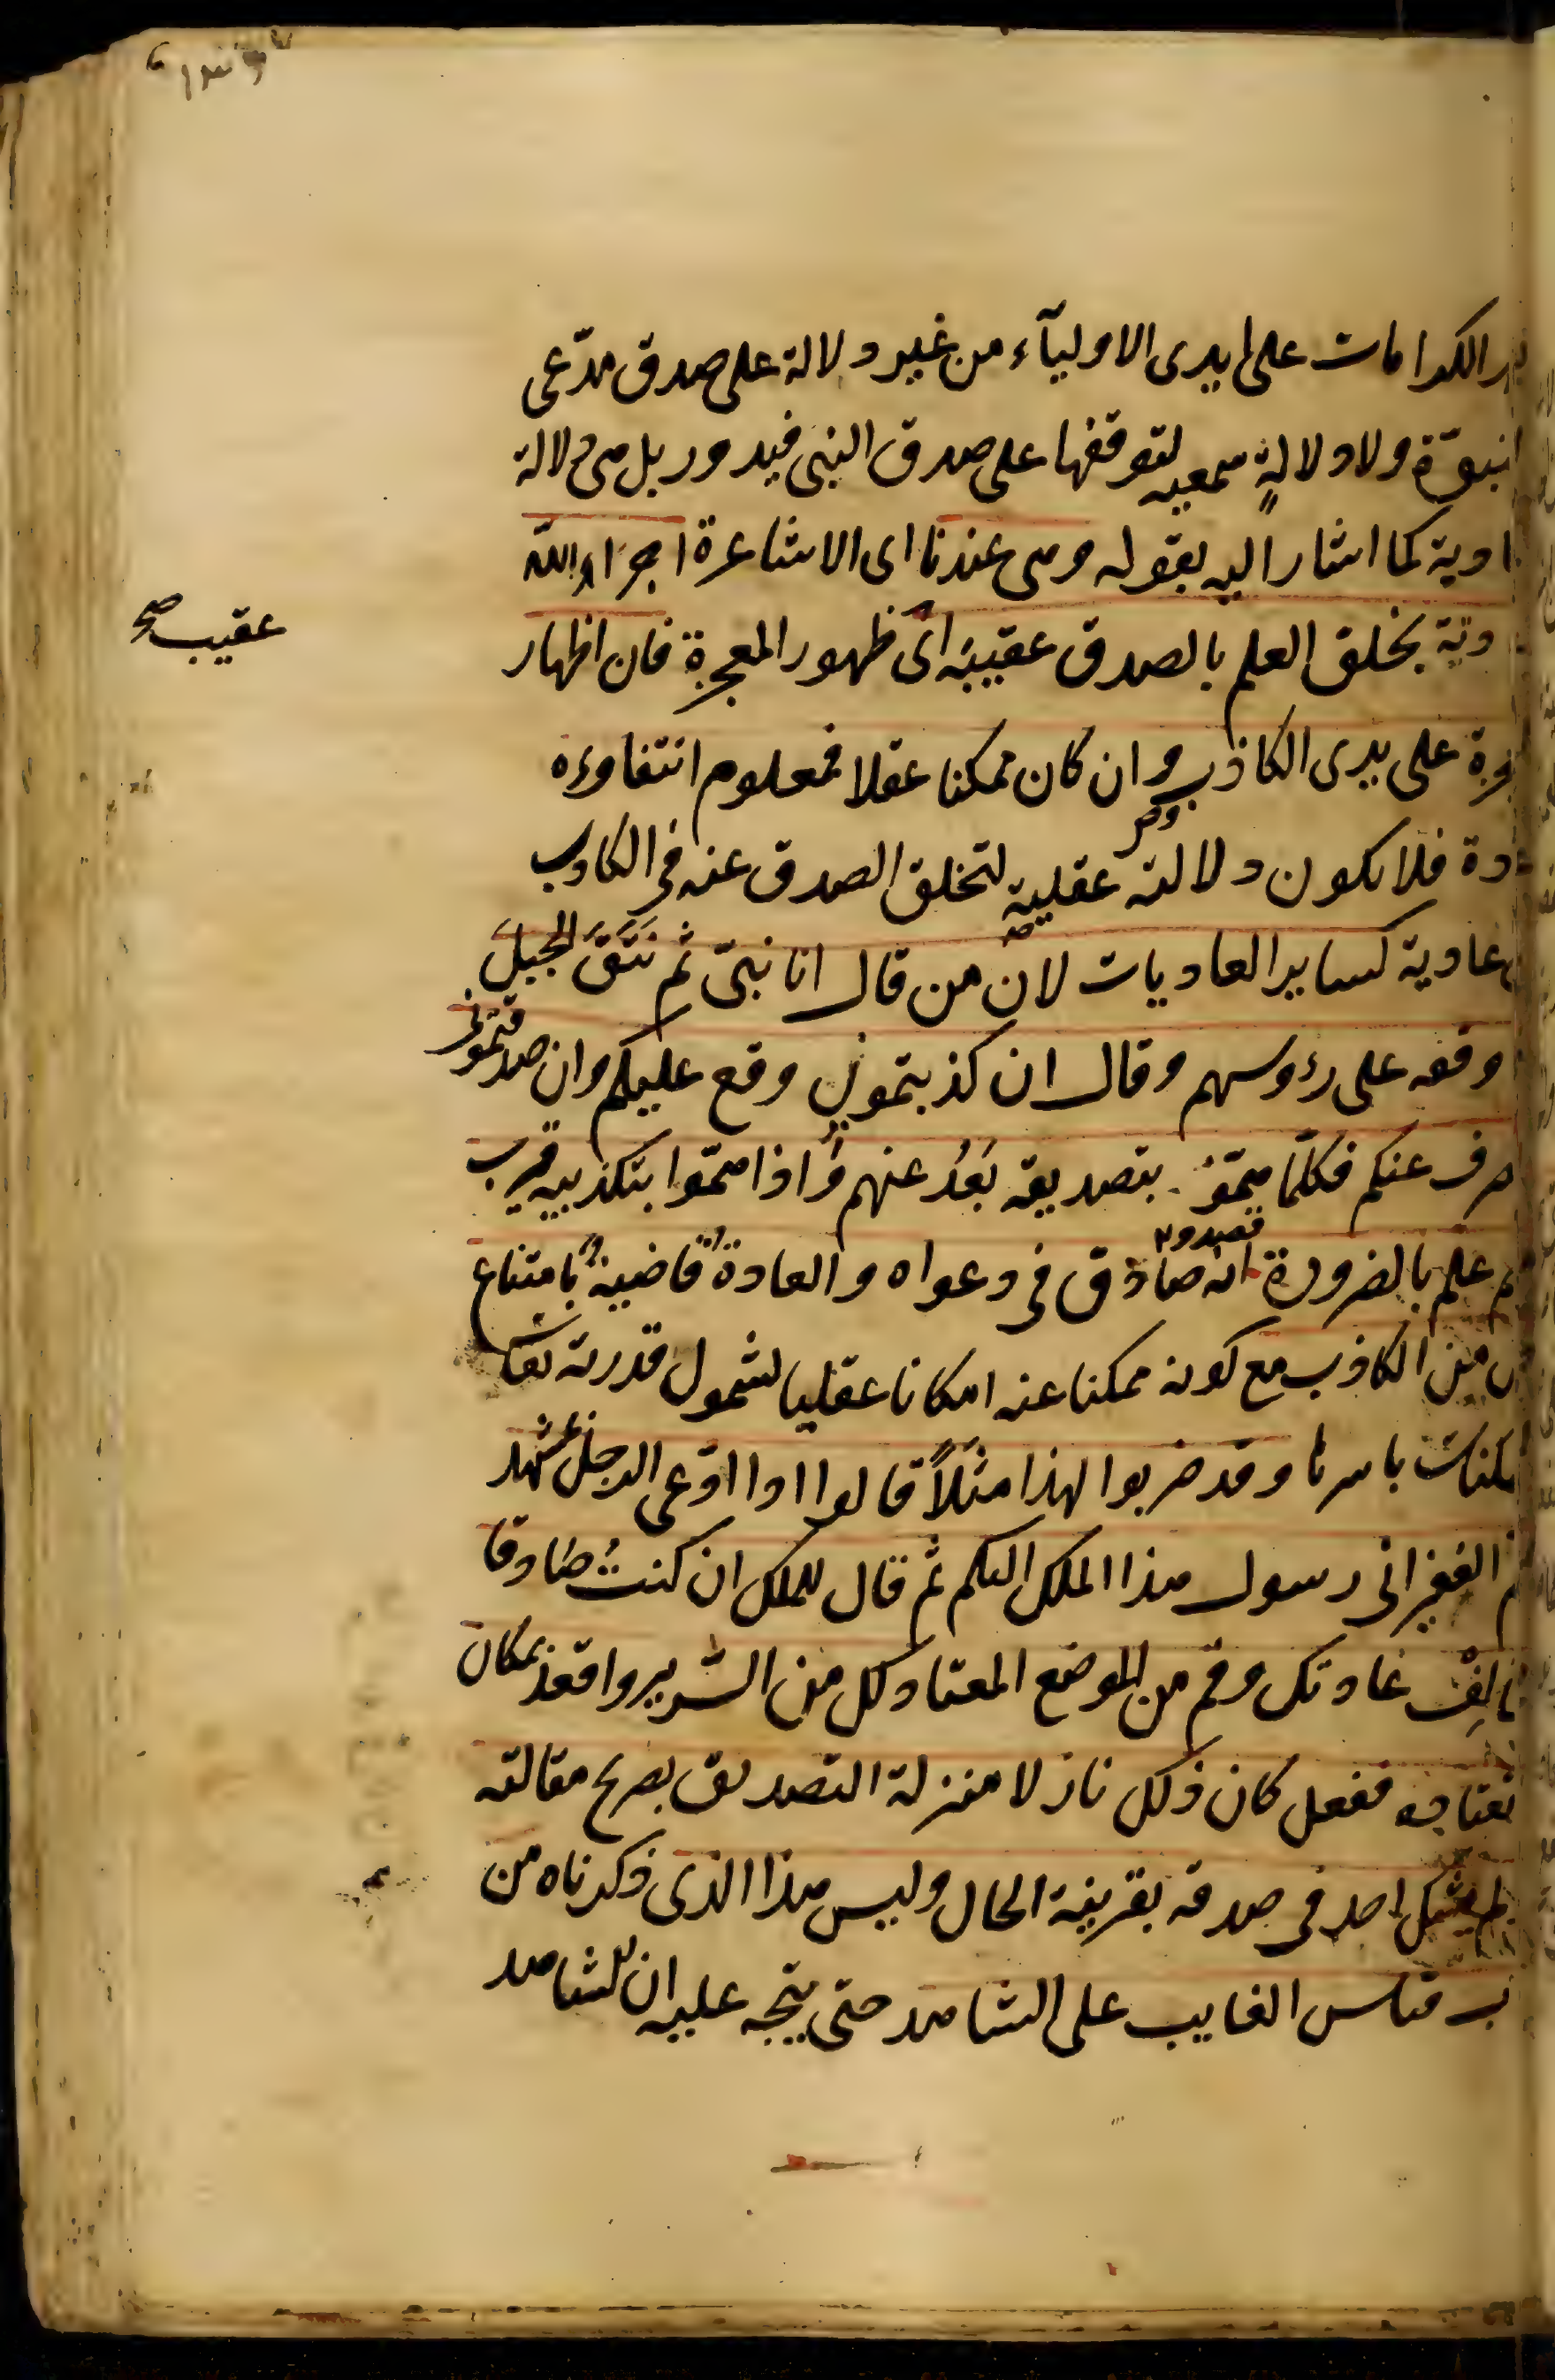 الكرامات على ايدى الاوليآء من غير دلالة على صدق مدّعى
النبوّة ولا دلالةٍ سمعيه لتوقفها على صدق النبى فيدور بل هى دلالة
عادية كما اشار اليه بقوله وهى عندنا اى الاشاعرة اجراء الله
بخلق العلم بالصدق عقيبَه اى ظهور المعجزة فان اظهار
عقيب صح
على يدى الكاذب وان كان ممكنا عقلا فمعلوم انتفاوءه
عادة فلا يكون دلالته عقلية لتخلق الصدق عنه فى الكاذب
عادية كساير العاديات لان من قال انا نبىّ ثم نَتَقَ الجبلَ
وقفه على رءوسهم وقال ان كذبتمونى وقع عليكم وان صدقتمونى
انصرف عنكم فكلّما همّوا بتصديقه بَعُدَ عنهم واذا همّوا بتكذيبه قرب
علم بالضرورة انه صادق فى دعواه والعادة قاضية بامتناع
من الكاذب مع كونه ممكنا عنه امكانا عقليا لشمول قدرته تعا
الممكنات باسرها وقد ضربوا لهذا مثلاً قالوا اذا ادّعى الرجل بمشهد
الغفير انى رسول هذا الملك اليكم ثم قال للملك ان كنتُ صادقا
فخالِفْ عادتك وقم من الموضع المعتاد لك من السرير واقعد بمكان
تعتاده ففعل كان ذلك نازلا منزلة التصديق بصريح مقالته
احد فى صدقه بقرينة الحال وليس هذا الذى ذكرناه من
قياس الغايب على الشاهد حتى يتجه عليه ان الشاهد